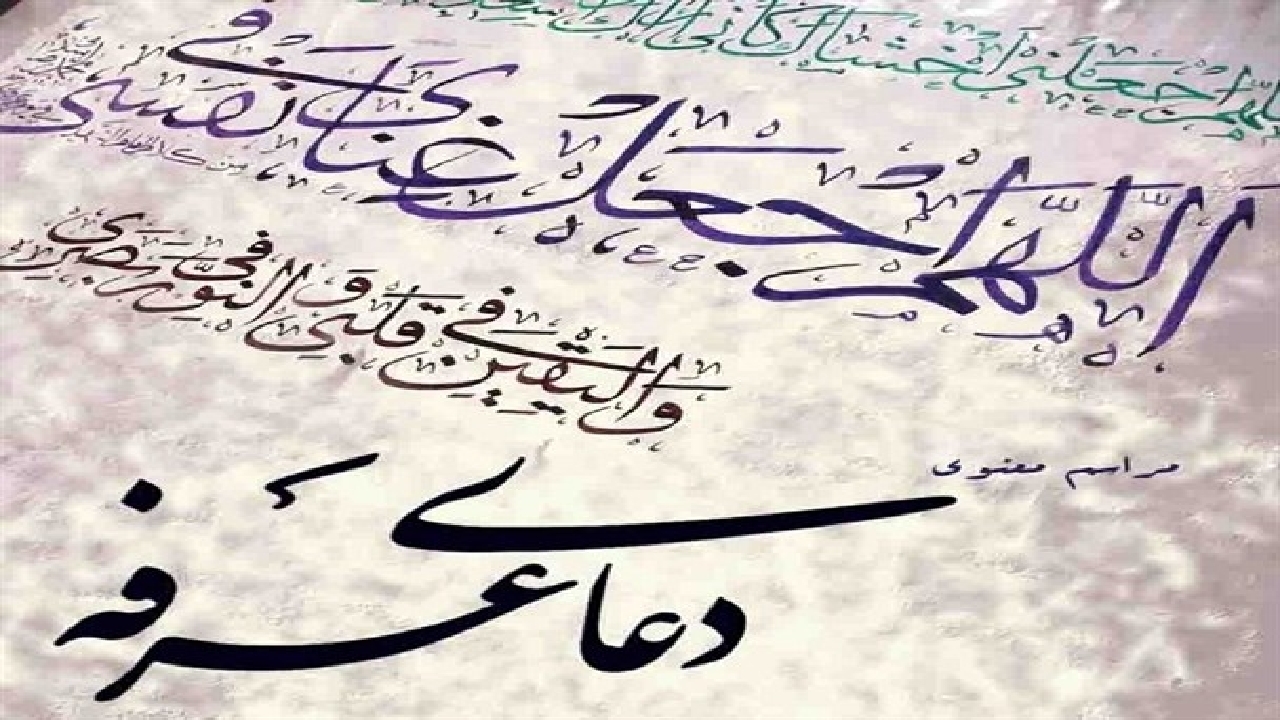 اللهم اجعلنی اخشاک کانی اراک
اللهم اجعل غنای فی نفسی
والیقین فی قلبی و النور فی بصری
مراسم معنوی
دعای عرفه